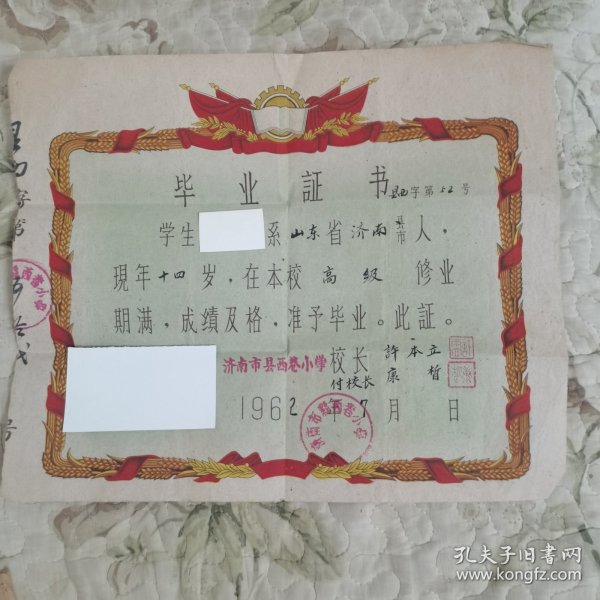 毕业証书
县西字第52号
学生 系山东省济南县市人，
現年十四岁，在本校高级修业
期满，成绩及格，准予毕业。此証。
济南市县西巷小学 校长 許本立
付校长 康哲
1962年7月 日
孔夫子旧书网
www.kongfz.com